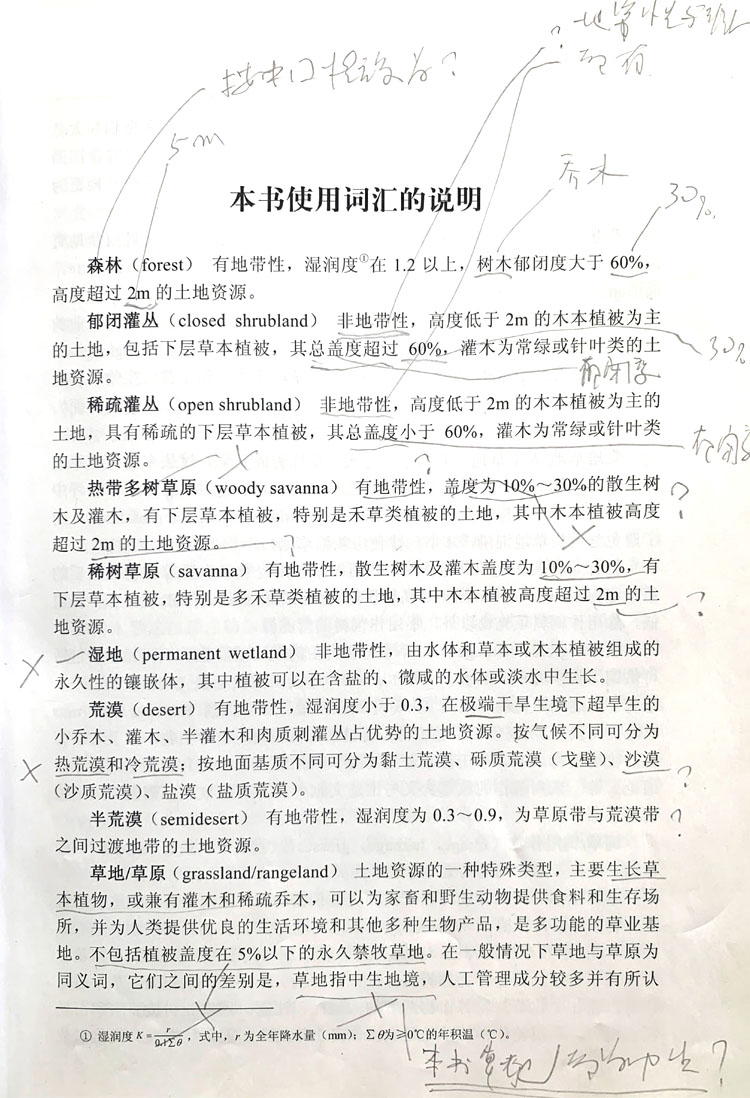 5m
乔木
30%
本书使用词汇的说明
森林（forest） 有地带性，湿润度①在 1.2 以上，树木郁闭度大于 60%，
高度超过 2m 的土地资源。
郁闭灌丛（closed shrubland） 非地带性，高度低于 2m 的木本植被为主
的土地，包括下层草本植被，其总盖度超过 60%，灌木为常绿或针叶类的土
30%
地资源。
稀疏灌丛（open shrubland） 非地带性，高度低于 2m 的木本植被为主的
土地，具有稀疏的下层草本植被，其总盖度小于 60%，灌木为常绿或针叶类
的土地资源。
热带多树草原（woody savanna） 有地带性，盖度为 10%～30%的散生树
木及灌木，有下层草本植被，特别是禾草类植被的土地，其中木本植被高度
超过 2m 的土地资源。
稀树草原（savanna） 有地带性，散生树木及灌木盖度为 10%～30%，有
下层草本植被，特别是多禾草类植被的土地，其中木本植被高度超过 2m 的土
地资源。
湿地（permanent wetland） 非地带性，由水体和草本或木本植被组成的
永久性的镶嵌体，其中植被可以在含盐的、微咸的水体或淡水中生长。
荒漠（desert） 有地带性，湿润度小于 0.3，在极端干旱生境下超旱生的
小乔木、灌木、半灌木和肉质刺灌丛占优势的土地资源。按气候不同可分为
热荒漠和冷荒漠；按地面基质不同可分为黏土荒漠、砾质荒漠（戈壁）、沙漠
（沙质荒漠）、盐漠（盐质荒漠）。
半荒漠（semidesert） 有地带性，湿润度为 0.3～0.9，为草原带与荒漠带
之间过渡地带的土地资源。
草地/草原（grassland/rangeland） 土地资源的一种特殊类型，主要生长草
本植物，或兼有灌木和稀疏乔木，可以为家畜和野生动物提供食料和生存场
所，并为人类提供优良的生活环境和其他多种生物产品，是多功能的草业基
地。不包括植被盖度在 5%以下的永久禁牧草地。在一般情况下草地与草原为
同义词，它们之间的差别是，草地指中生地境，人工管理成分较多并有所认
① 湿润度 K=r/0.1∑θ，式中，r 为全年降水量（mm）；∑θ为≥0℃的年积温（℃）。